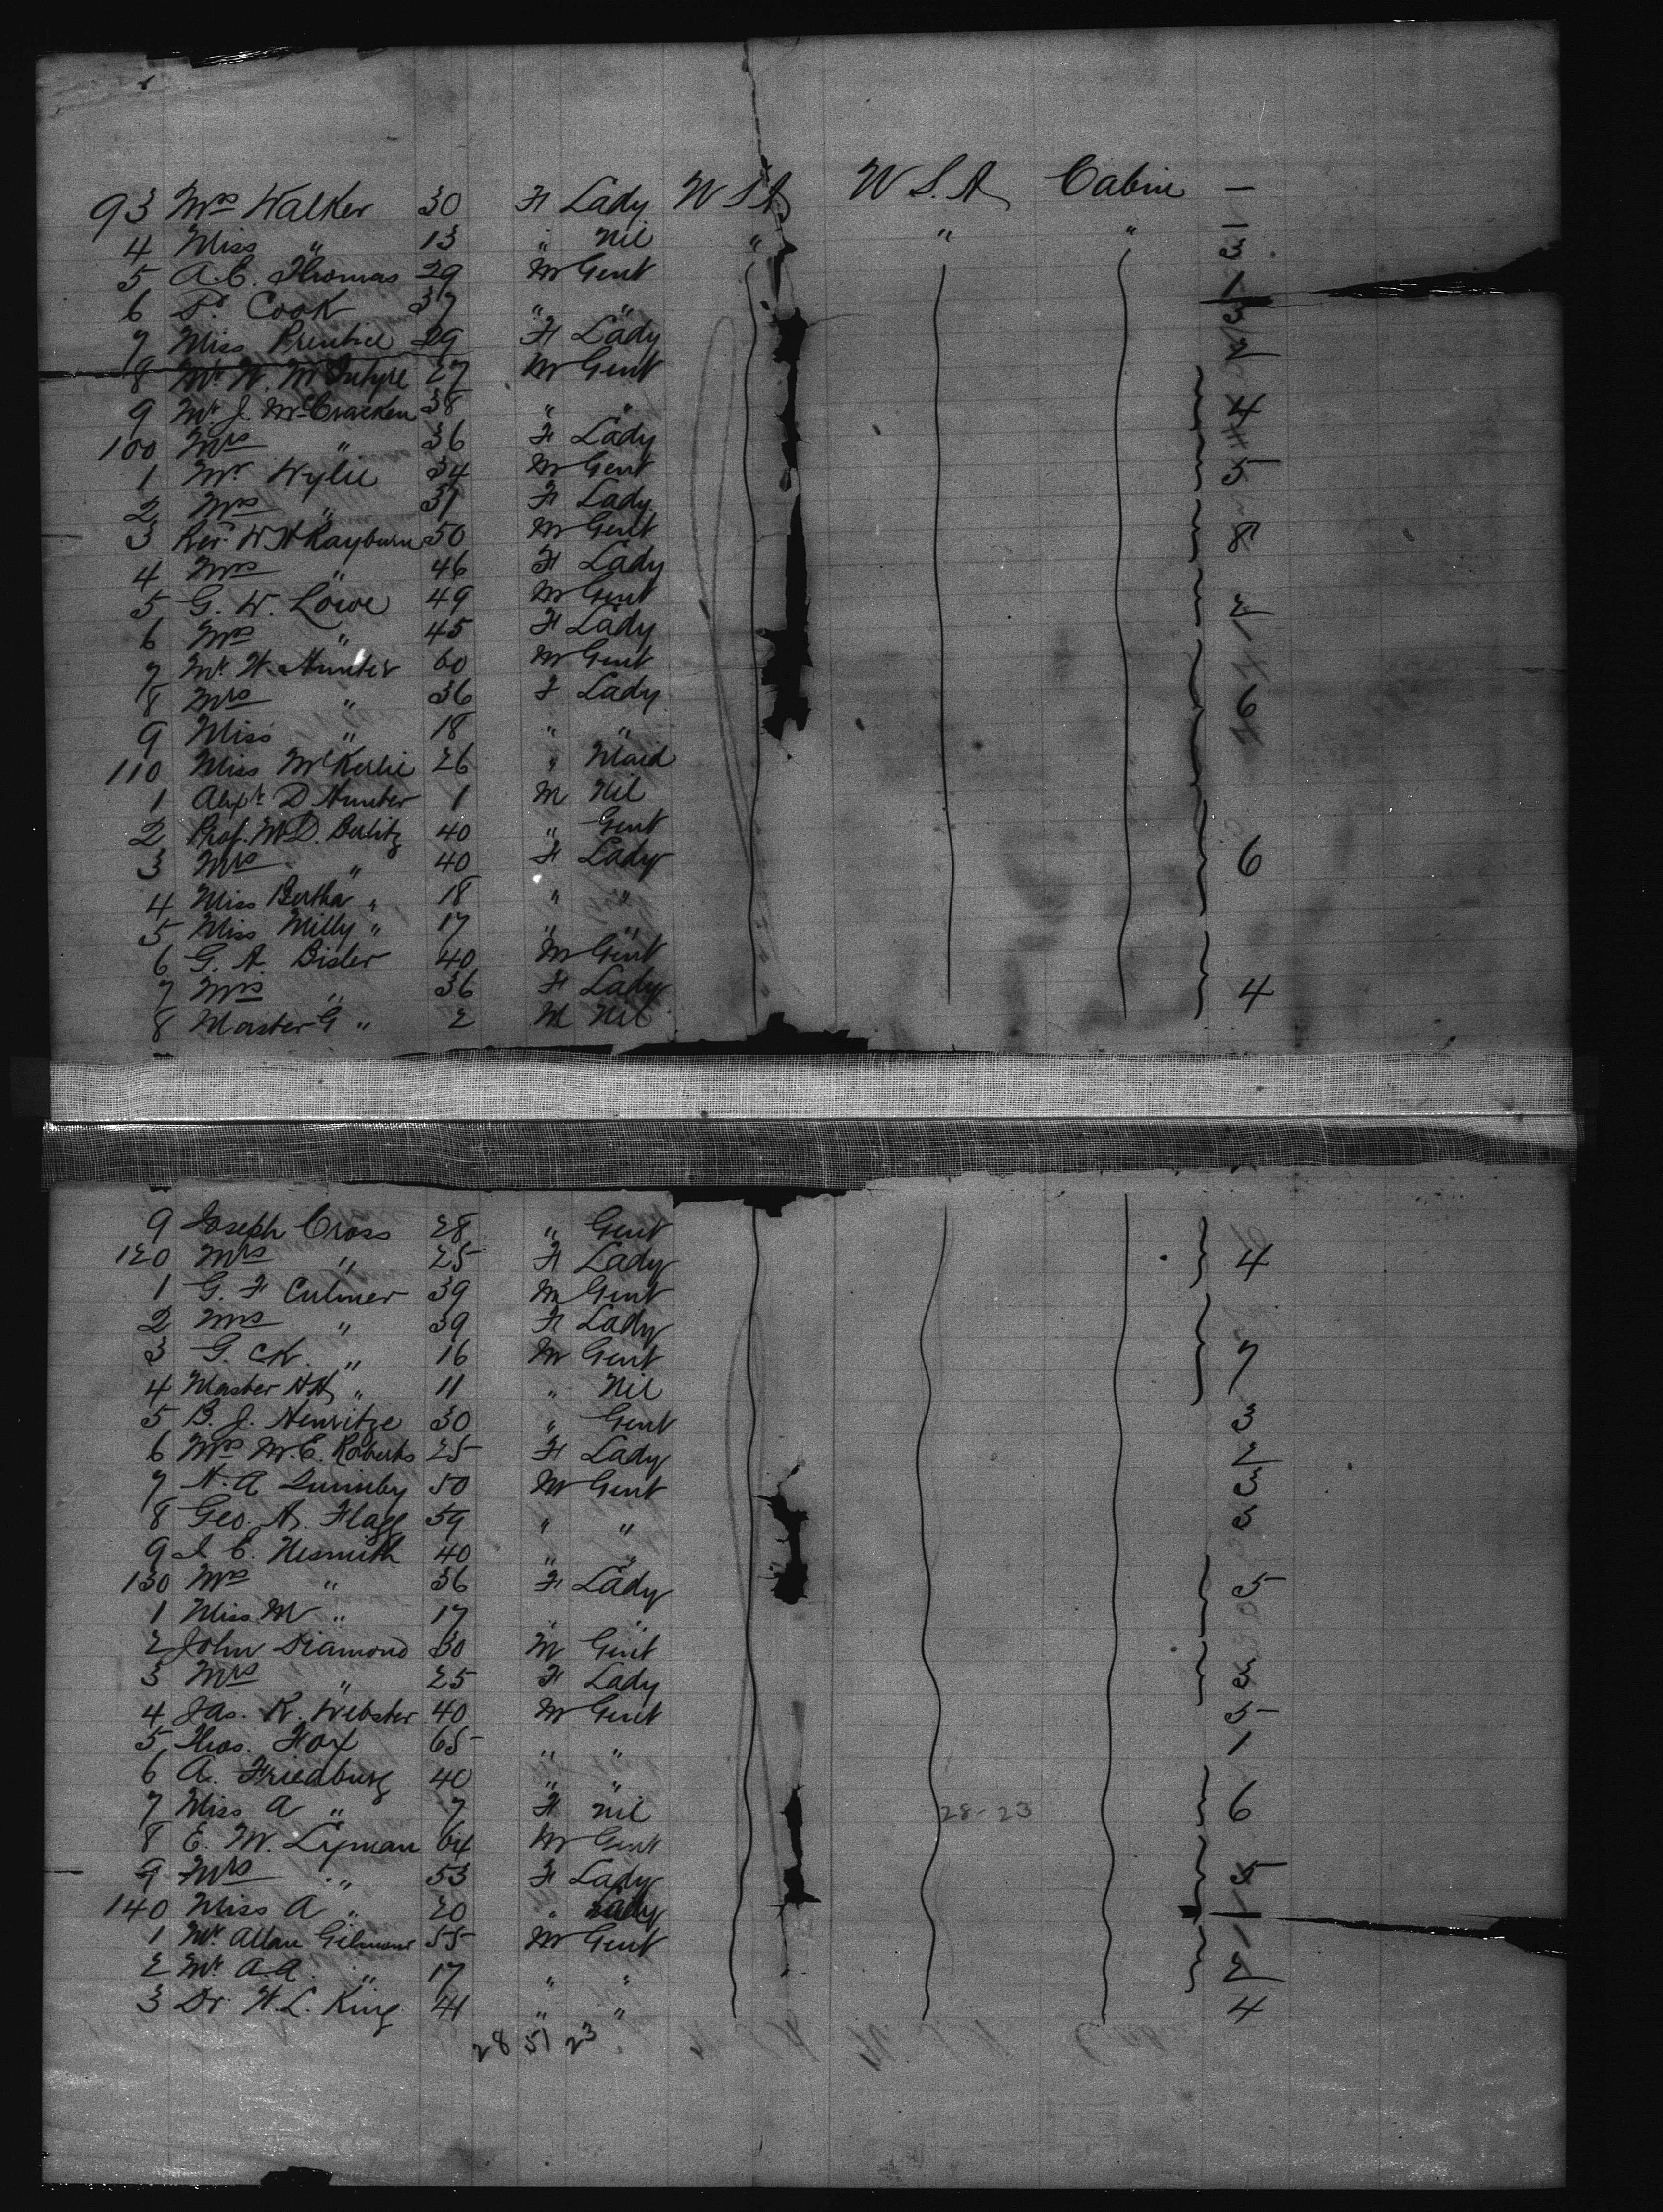 93 Mrs Walker 30 F Lady U S A U S. A Cabin —
4 Miss " 13 " Nil " " " 1
5 A. E. Thomas 29 M Gent 3
6 Cook 37 " " 1
7 Miss Prentice 29 F Lady 3
8 Mr W. McIntyre 27 M Gent 2
9 Mr J. McCracken 38 " " 4
100 Mrs " 36 F Lady
1 Mr Wylie 34 M Gent 5
2 Mrs " 31 F Lady
3 Rev. W H Rayburn 50 M Gent 8
4 Mrs " 46 F Lady
5 G. W. Lowe 49 M Gent 2
6 Mrs " 45 F Lady
7 Mr W. Hunter 60 M Gent
8 Mrs " 36 F Lady 6
9 Miss " 18 " "
110 Miss McKerlie 26 " Maid
1 Alexr D Hunter 1 M Nil
2 Prof. M. D. Berlitz 40 " Gent
3 Mrs " 40 F Lady 6
4 Miss Bertha " 18 " "
5 Miss Milly " 17 " "
6 G. A. Bisler 40 M Gent
7 Mrs " 36 F Lady 4
8 Master G " 2 M Nil
9 Joseph Cross 28 " Gent
120 Mrs " 25 F Lady 4
1 G. F Culmer 39 M Gent
2 Mrs " 39 F Lady
3 G. K. " 16 M Gent 7
4 Master H H " 11 " Nil
5 B. J. Henritze 30 " Gent 3
6 Mrs M. E. Roberts 25 F Lady 2
7 N. A Quimby 50 M Gent 3
8 Geo. A. Flagg 59 " " 3
9 J E. Nesmith 40 " "
130 Mrs " 36 F Lady 5
1 Miss M " 17 " "
2 John Diamond 30 M Gent
3 Mrs " 25 F Lady 3
4 Jas. R. Webster 40 M Gent 5
5 Thos. Fox 65 " " 1
6 A. Friedburg 40 " "
7 Miss A " 7 F Nil 28-23 6
8 E. W. Lyman 64 M Gent
9 Mrs " 53 F Lady 5
140 Miss A " 20 " Lady
1 Mr. Allan Gilmour 55 M Gent
2 Mr A. A. " 17 " " 2
3 Dr. W. L. King 41 " " 4
28 51 23